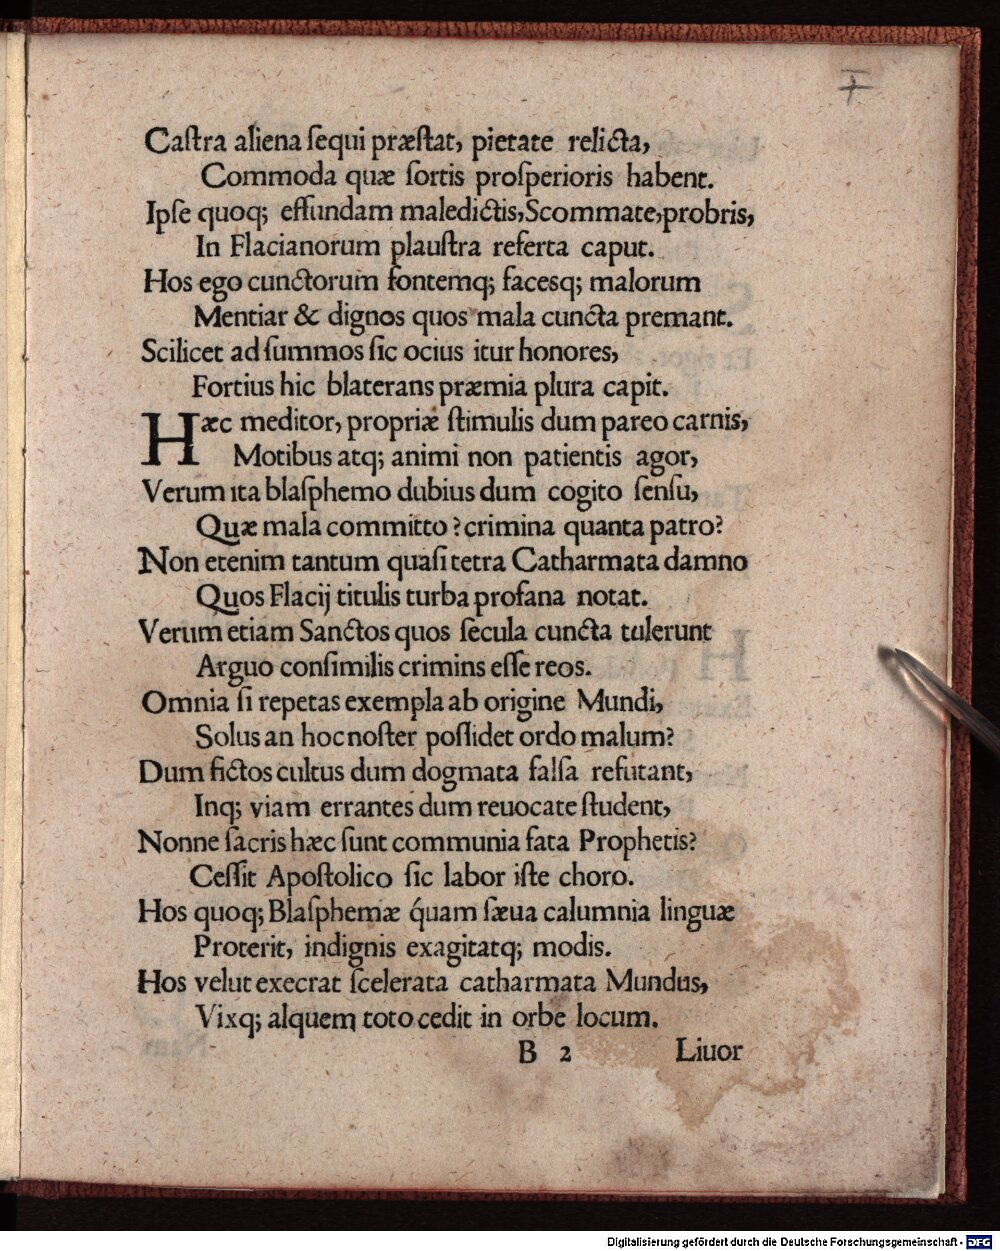 7
Castra aliena sequi præstat, pietate relicta,
Commoda quæ sortis prosperioris habent.
Ipse quoq; effundam maledictis,Scommate,probris,
In Flacianorum plaustra referta caput.
Hos ego cunctorum fontemq; facesq; malorum
Mentiar & dignos quos mala cuncta premant.
Scilicet ad summos sic ocius itur honores,
Fortius hic blaterans præmia plura capit.
Hæc meditor, propriæ stimulis dum pareo carnis,
Motibus atq; animi non patientis agor,
Verum ita blasphemo dubius dum cogito sensu,
Quæ mala committo? crimina quanta patro?
Non etenim tantum quasi tetra Catharmata damno
Quos Flacij titulis turba profana notat.
Verum etiam Sanctos quos secula cuncta tulerunt
Arguo consimilis crimins esse reos.
Omnia si repetas exempla ab origine Mundi,
Solus an hoc noster possidet ordo malum?
Dum fictos cultus dum dogmata falsa refutant,
Inq; viam errantes dum reuocate student,
Nonne sacris hæc sunt communia fata Prophetis?
Cessit Apostolico sic labor iste choro.
Hos quoq; Blasphemæ q́uam sæua calumnia linguæ
Proterit, indignis exagitatq; modis.
Hos velut execrat scelerata catharmata Mundus,
Vixq; alquem toto cedit in orbe locum.
B 2 Liuor
Digitalisierung gefördert durch die Deutsche Forschungsgemeinschaft - DFG